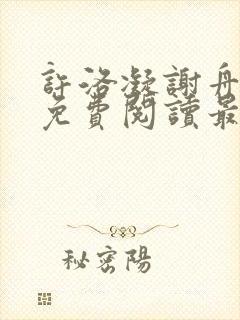 許洛凝謝舟
免費閱讀最
秘密陽